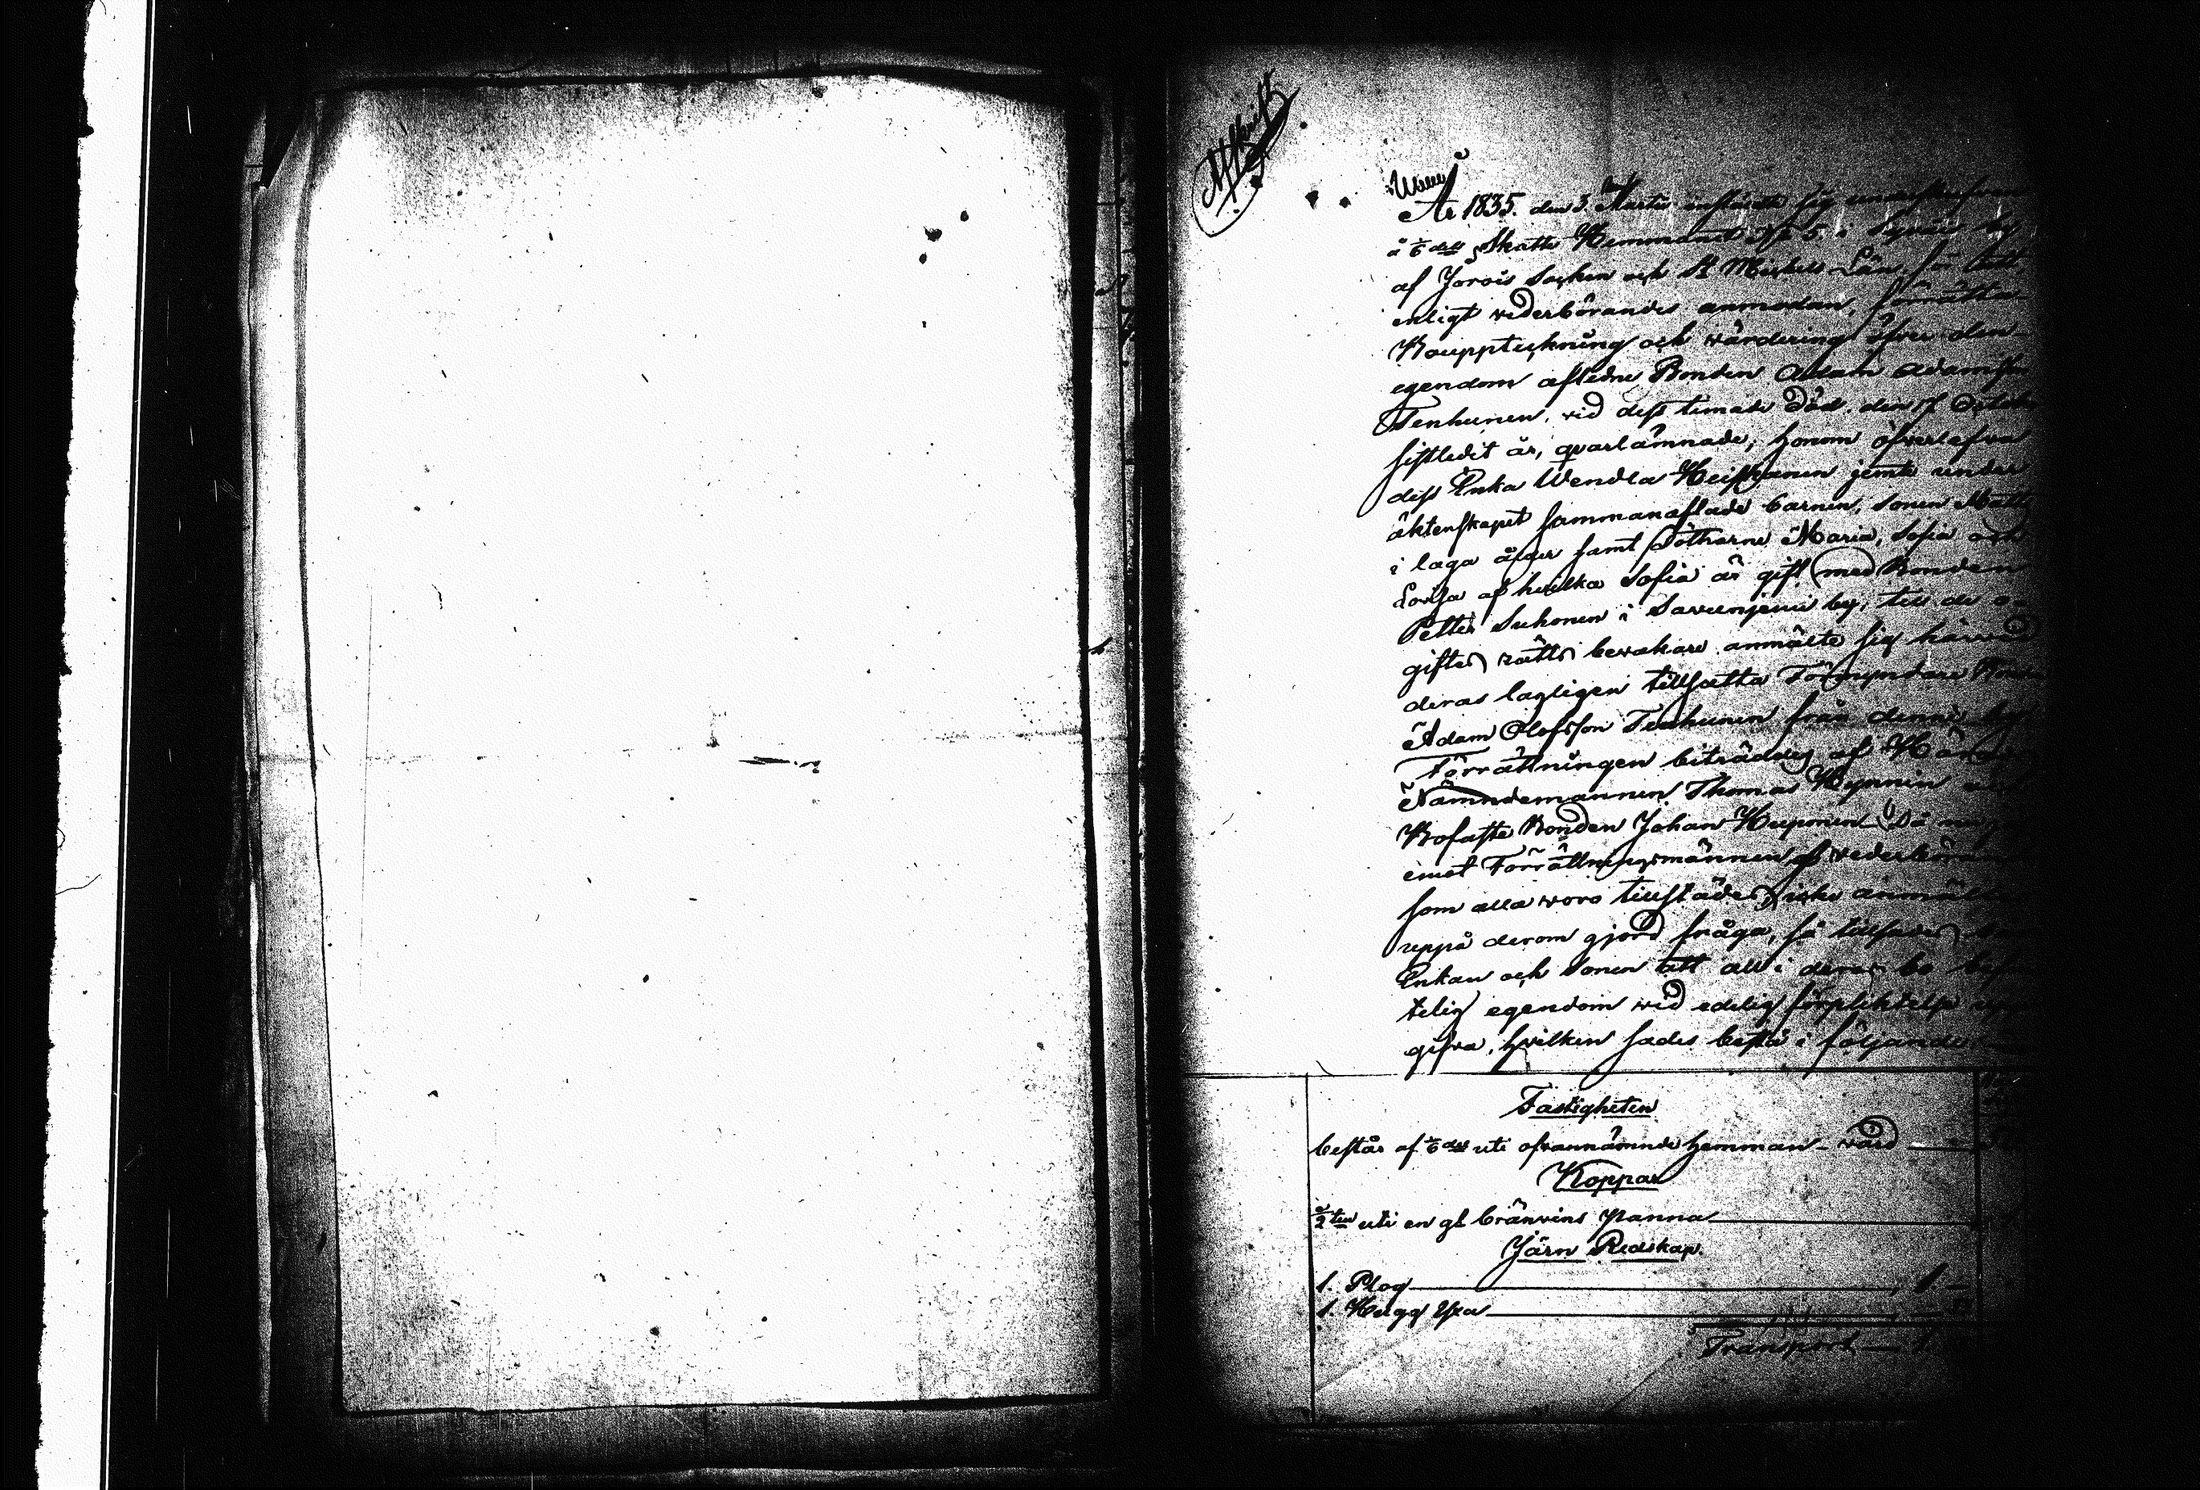 Afskrift
År 1835. den 3. Martii instälde sig undertecknad
å 1/6 del Skatte Hemmanet No 5. i by
af Jorois Socken och St Michels Län, för att,
enligt vederbörandes anmodan, förrätta
Bouppteckning och värdering öfver den
egendom aflidne Bonden Adam Adamsson
Tenhunen, vid dess timade död den 17 October
sistledit år, qvarlämnade, honom öfverlefva
dess Enka Wendla Heiskanen jemte under
äktenskapet sammanaflade barnen, sonen Matts
i laga ålder samt Döttrarne Maria, Sofia och
Lovisa af hvilka Sofia är gift med Bonden
Petter Suhonen i by, till de o-
giftes rätts bevakare anmälte sig härvid
deras lagligen tillsatta Förmyndare Bonden
Adam Olofsson Tenhunen från denna by.
Förrättningen biträddes af
Nämndemannen Thomas Hynnin och
Bofaste Bonden Johan Huponen Då
emot Förrättningsmännen af vederbörande
som alla voro tillstädes, icke anmältes
uppå derom gjord fråga, så tillsades
Enkan och Sonen att all i deras bo
telig egendom vid edelig förpliktelse upp
gifva, hvilken sades bestå i följande
Fastigheten
består af 1/6 del uti ofvannämnde hemman värd
Koppar
1/2 ten uti en gl bränvins panna
Järn Redskap.
1. Plog 1 –
1. Hugg Yxa
Transport 1